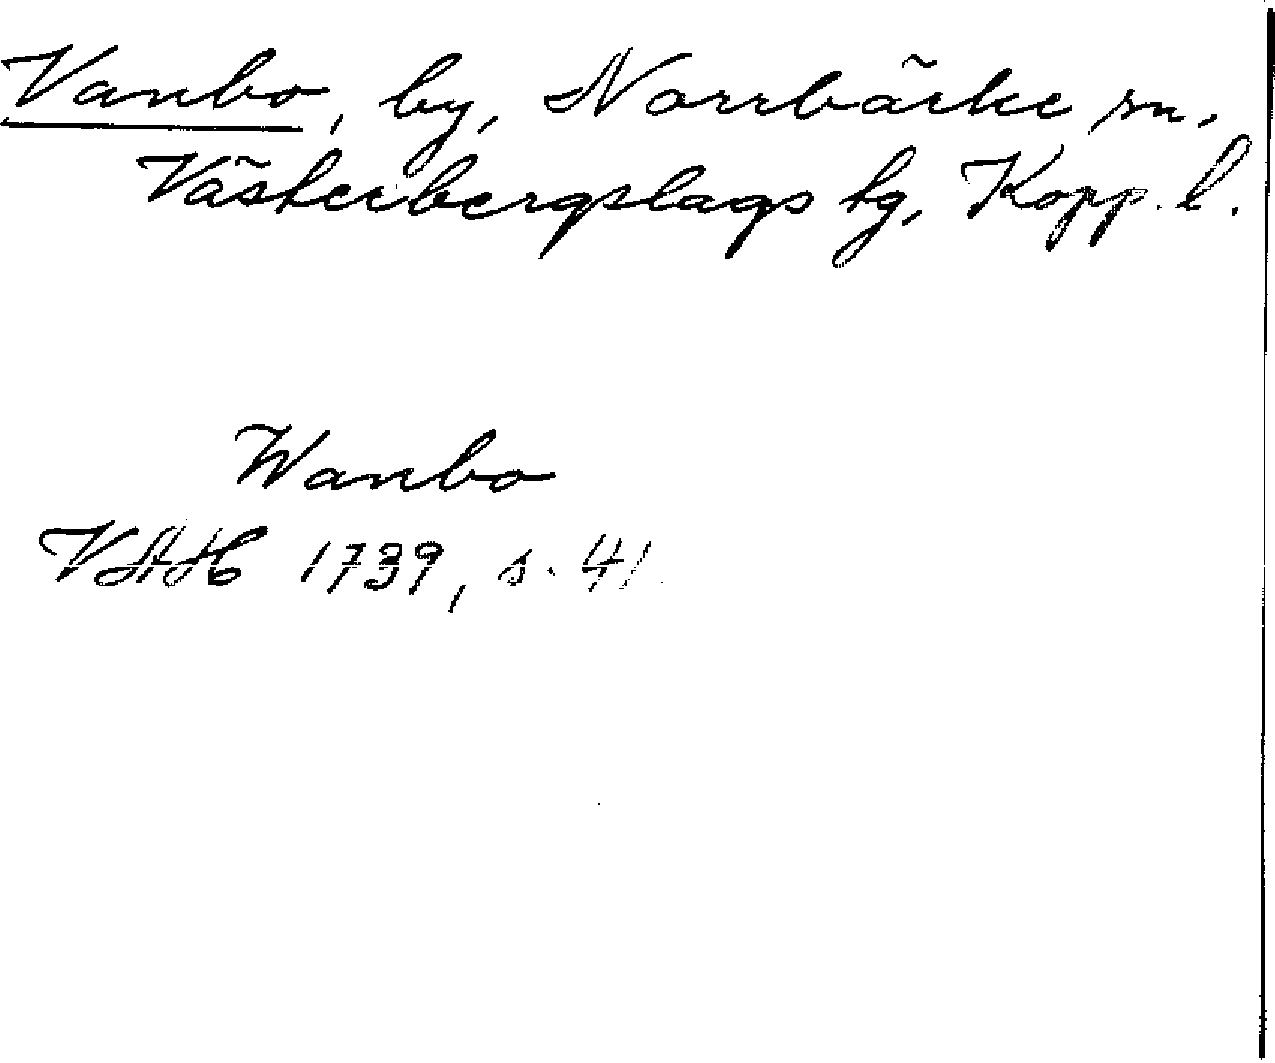 Vanbo, by, Norrbärke sn,
Västerbergslags tg, Kopp. l.
Wanbo
VAH 1739, s. 41.